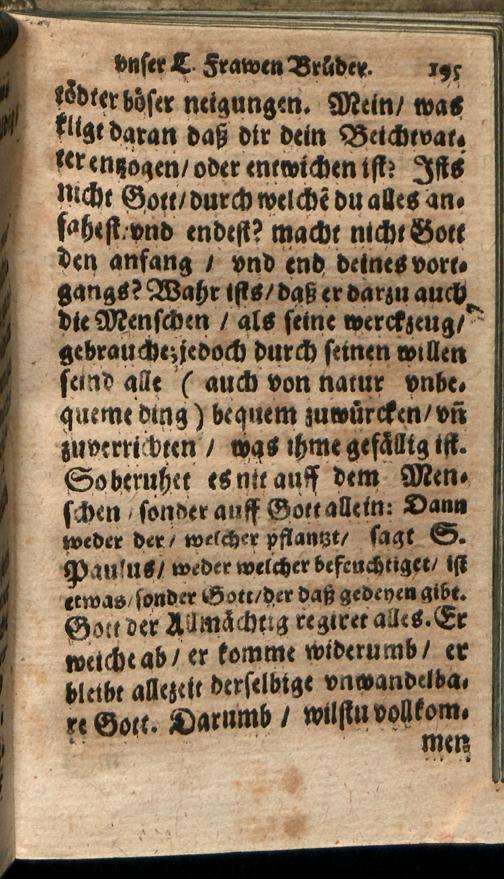 vnser L. Frawen Brüder. 195
tödter böser neigungen. Mein/ was
kligt daran daß dir dein Beichtvat⸗
ter entzogen/ oder entwichen ist? Ists
nicht Gott/ durch welchē du alles an⸗
fahest/ vnd endest? macht nicht Gott
den anfang / vnd end deines vort⸗
gangs? Wahr ists/ daß er darzu auch
die Menschen / als seine werckzeug/
gebrauche; jedoch durch seinen willen
seind alle ( auch von natur vnbe⸗
queme ding ) bequem zuwürcken/ vñ
zuverrichten / was ihme gefällig ist.
So beruhet es nit auff dem Men⸗
schen / sonder auff Gott allein: Dann
weder der/ welcher pflantzt/ sagt S.
Paulus/ weder welcher befeuchtiget/ ist
etwas/ sonder Gott/ der daß gedeyen gibt.
Gott der Allmächtig regiret alles. Er
weiche ab / er komme widerumb / er
bleibt allezeit derselbige vnwandelba⸗
re Gott. Darumb / wilstu vollkom⸗
men